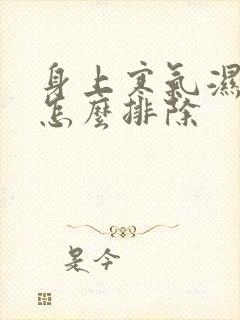 身上寒氣濕
怎麼排除
是今